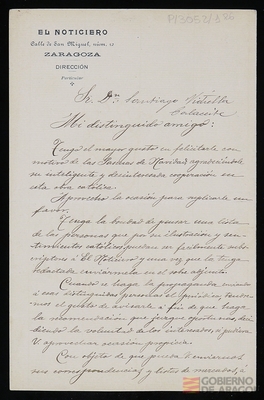 P/3052/3
EL NOTICIERO
Calle de San Miguel, núm. 12
ZARAGOZA
DIRECCIÓN
Particular
Sr. Dn. Santiago Vidiella
Calaceite
Mi distinguido amigo:
Tengo el mayor gusto en felicitarle con
motivo de las Pascuas de Navidad, agradeciéndole
su inteligente y desinteresada cooperación en
esta obra católica.
Aprovecho la ocasión para suplicarle un
favor.
Tenga la bondad de pensar una lista
de las personas que por su ilustración y sen-
timientos católicos puedan ser fácilmente subs-
criptores á El Noticiero y una vez que la tenga
redactada, enviármela en el sobre adjunto.
Cuando se haga la propaganda enviando
á esas distinguidas personas el periódico, tendre-
mos el gusto de avisarle á fin de que haga
la recomendación que juzgue oportuna, deci-
diendo la voluntad de los interesados, si pudiera
V. aprovechar ocasión propicia.
Con objeto de que pueda V. enviarnos
sus correspondencias y listas de mercados, á
GOBIERNO
DE ARAGON